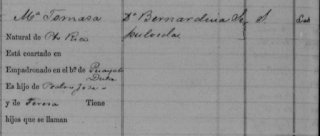 Mª Tomasa Dª Bernardina Se S
Natural de Pto Rico pulveda
Está coartado en
Empadronado en el bº de
Es hijo de Pedro José
y de Teresa Tiene
hijos que se llaman